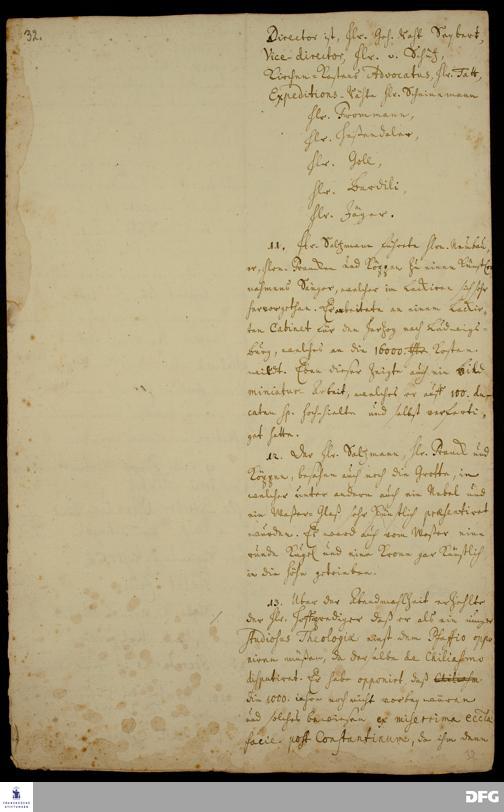 32.
Director ist, Hr. Geh. Raht Seybert,
Vice-director, Hr. v. Schüz,
Kirchen-Kastens Advocatus, Hr. Fatt,
Expeditions-Rähte Hr. Scheinemann
Hr. Frommann,
Hr. Hessenthaler,
Hr. Goll,
Hr. Burdili,
Hr. Jäger.
11. Hr. Saltzmann führete Hrn. Neubau-
er, Hrn. Francken und Köppen zu einem Künstler
nahmens Singer, welcher im Lackiren sich sehr
hervorgethan. Er arbeitete an einem Lackir-
ten Cabinet für den Herzog nach Ludwigs-
burg, welches an die 16000. Kosten
wirdt. Eben dieser zeigte auch ein Bild
miniatur-Arbeit, welches er auff 100. du-
caten sp. hochhielte und selbst verferti-
get hatte.
12. Der Hr. Saltzmann, Hr. Franck und
Köppen, besahen auch noch die Grotte, in
welcher unter andern auch ein Nebel und
ein Waßer-Glaß sehr künstlich præsentiret
wurden. Es ward auch vom Waßer eine
runde Kugel und eine Krone gar künstlich
in die Höhe getrieben.
13. Uber der Abendmahlzeit erzehlte
der Hr. Hoffprediger daß er als ein junger
Studiosus Theologiæ einst dem Pfaffio oppo-
niren müßen, da derselbe de Chiliasmo
disputiret. Er habe opponirt daß
die 1000. jahre noch nicht vorbey wären
und solches bewiesen ex miserrima eccle-
facie post Constantinum, da ihm denn
32
FRANCKESCHE STIFTUNGEN
DFG